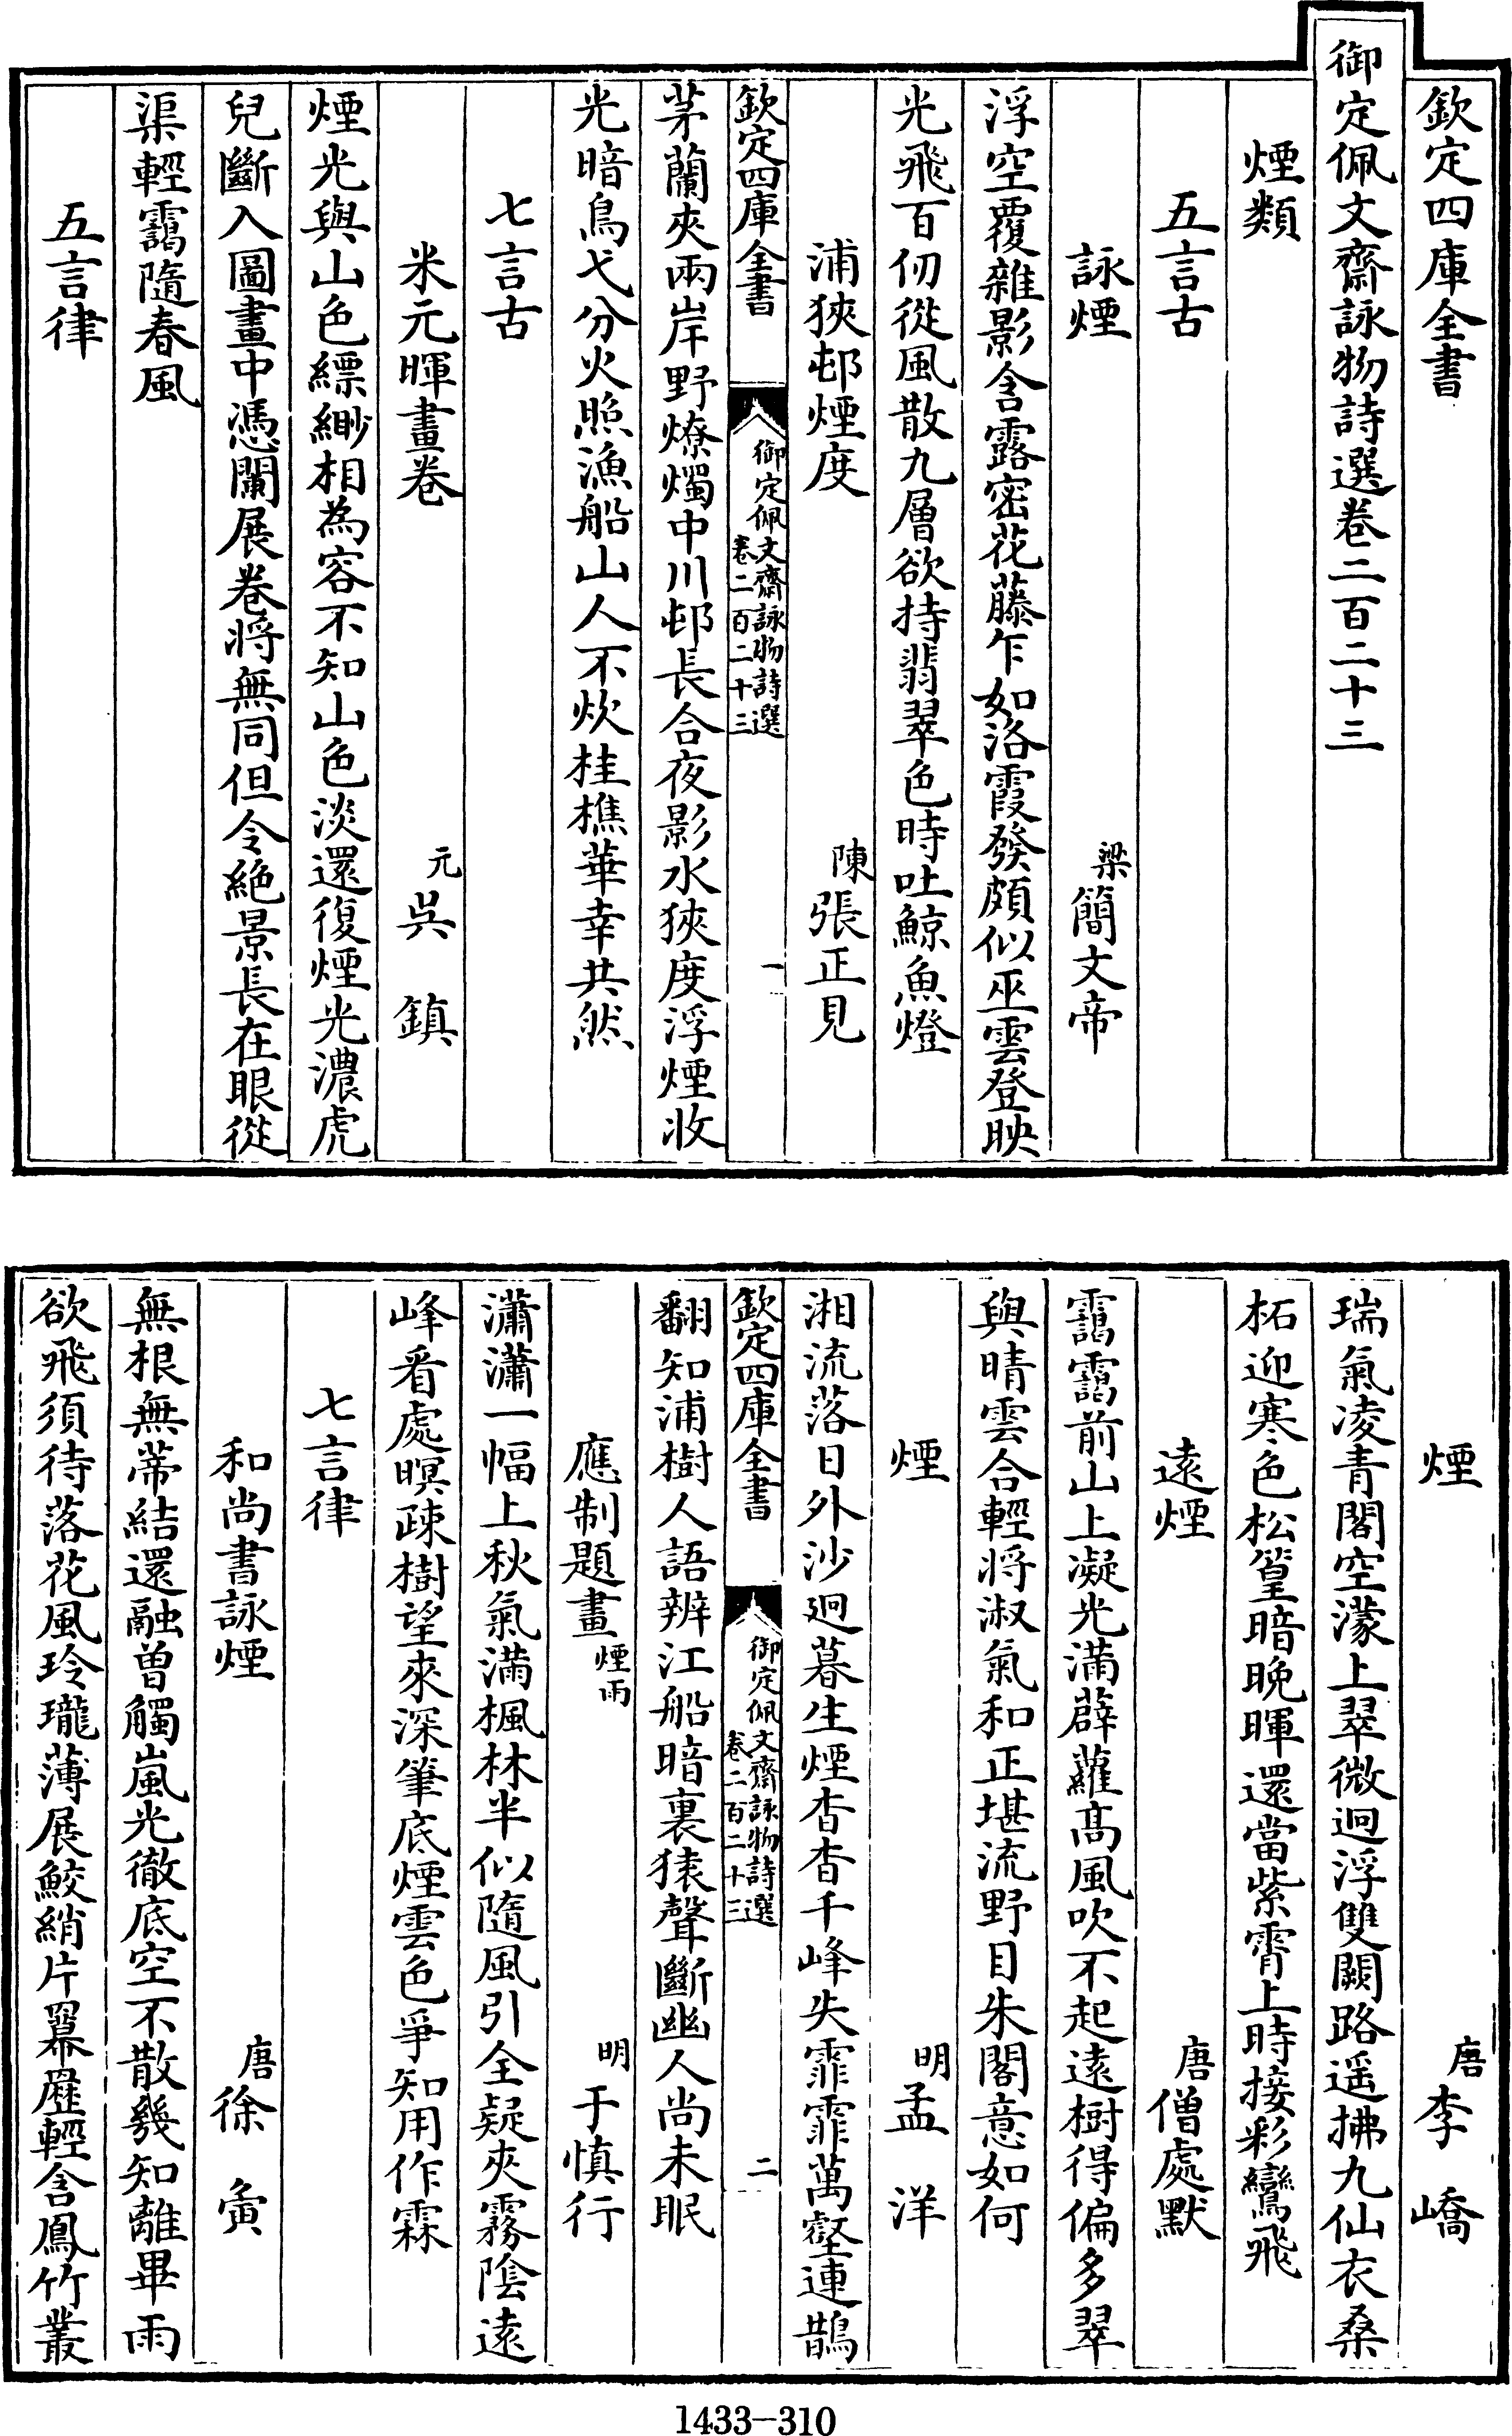 欽定四庫全書
御定佩文齋詠物詩選卷二百二十三
煙類
五言古
詠煙 梁簡文帝
浮空覆雜影含露密花藤乍如洛霞發頗似巫雲登映
光飛百仞從風散九層欲持翡翠色時吐鯨魚燈
浦狹邨煙度 陳張正見
欽定四庫全書 御定佩文齋詠物詩選 卷二百二十三 一
茅蘭夾兩岸野燎燭中川邨長合夜影水狹度浮煙收
光暗鳥弋分火照漁船山人不炊桂樵華幸共然
七言古
米元暉畫卷 元吳鎮
煙光與山色縹緲相為容不知山色淡還復煙光濃虎
兒斷入圖畫中憑闌展卷將無同但令絕景長在眼從
渠輕靄隨春風
五言律
煙 唐李嶠
瑞氣凌青閣空濛上翠微迥浮雙闕路遥拂九仙衣桑
柘迎寒色松篁暗晚暉還當紫霄上時接彩鸞飛
遠煙 唐僧處默
靄靄前山上凝光滿薜蘿高風吹不起遠樹得偏多翠
與晴雲合輕將淑氣和正堪流野目朱閣意如何
煙 明孟洋
湘流落日外沙迥暮生煙杳杳千峰失霏霏萬壑連鵲
欽定四庫全書 御定佩文齋詠物詩選 卷二百二十三 二
翻知浦樹人語辨江船暗裏猿聲斷幽人尚未眠
應制題畫 煙雨 明于慎行
瀟瀟一幅上秋氣滿楓林半似隨風引全疑夾霧陰遠
峰看處暝疎樹望來深筆底煙雲色爭知用作霖
七言律
和尚書詠煙 唐徐夤
無根無蒂結還融曾觸嵐光徹底空不散幾知離畢雨
欲飛須待落花風玲瓏薄展鮫綃片羃𠪱輕含鳳竹叢
1433-310